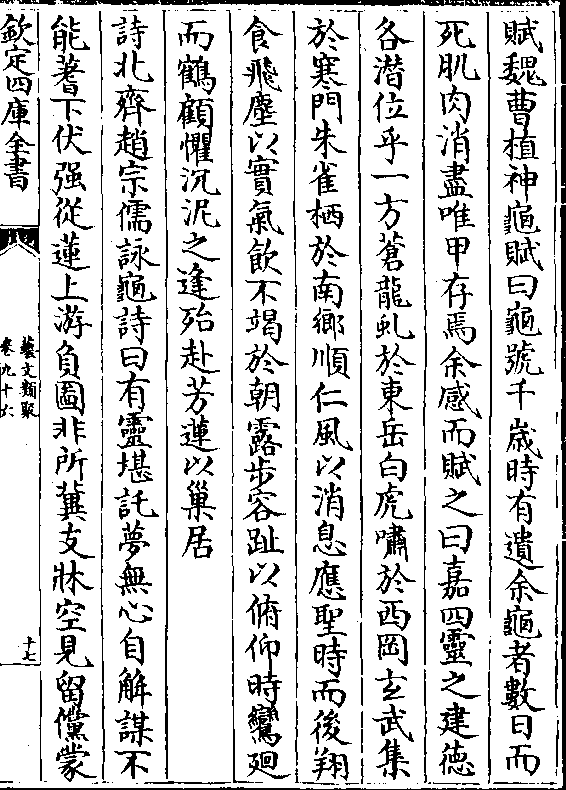 賦魏曹植神龜賦曰龜號千歲時有遺余龜者數日而
死肌肉消盡唯甲存焉余感而賦之曰嘉四靈之建德
各潛位乎一方蒼龍虬於東岳白虎嘯於西岡玄武集
於寒門朱雀栖於南鄉順仁風以消息應聖時而後翔
食飛塵以實氣飲不竭於朝露步容趾以俯仰時鸞廻
而鶴顧懼沉泥之逢殆赴芳蓮以巢居
詩北齊趙宗儒詠龜詩曰有靈堪託夢無心自解謀不
能著下伏强從蓮上游負圖非所冀支牀空見留儻蒙
欽定四庫全書
藝文類聚
卷九十六
十七